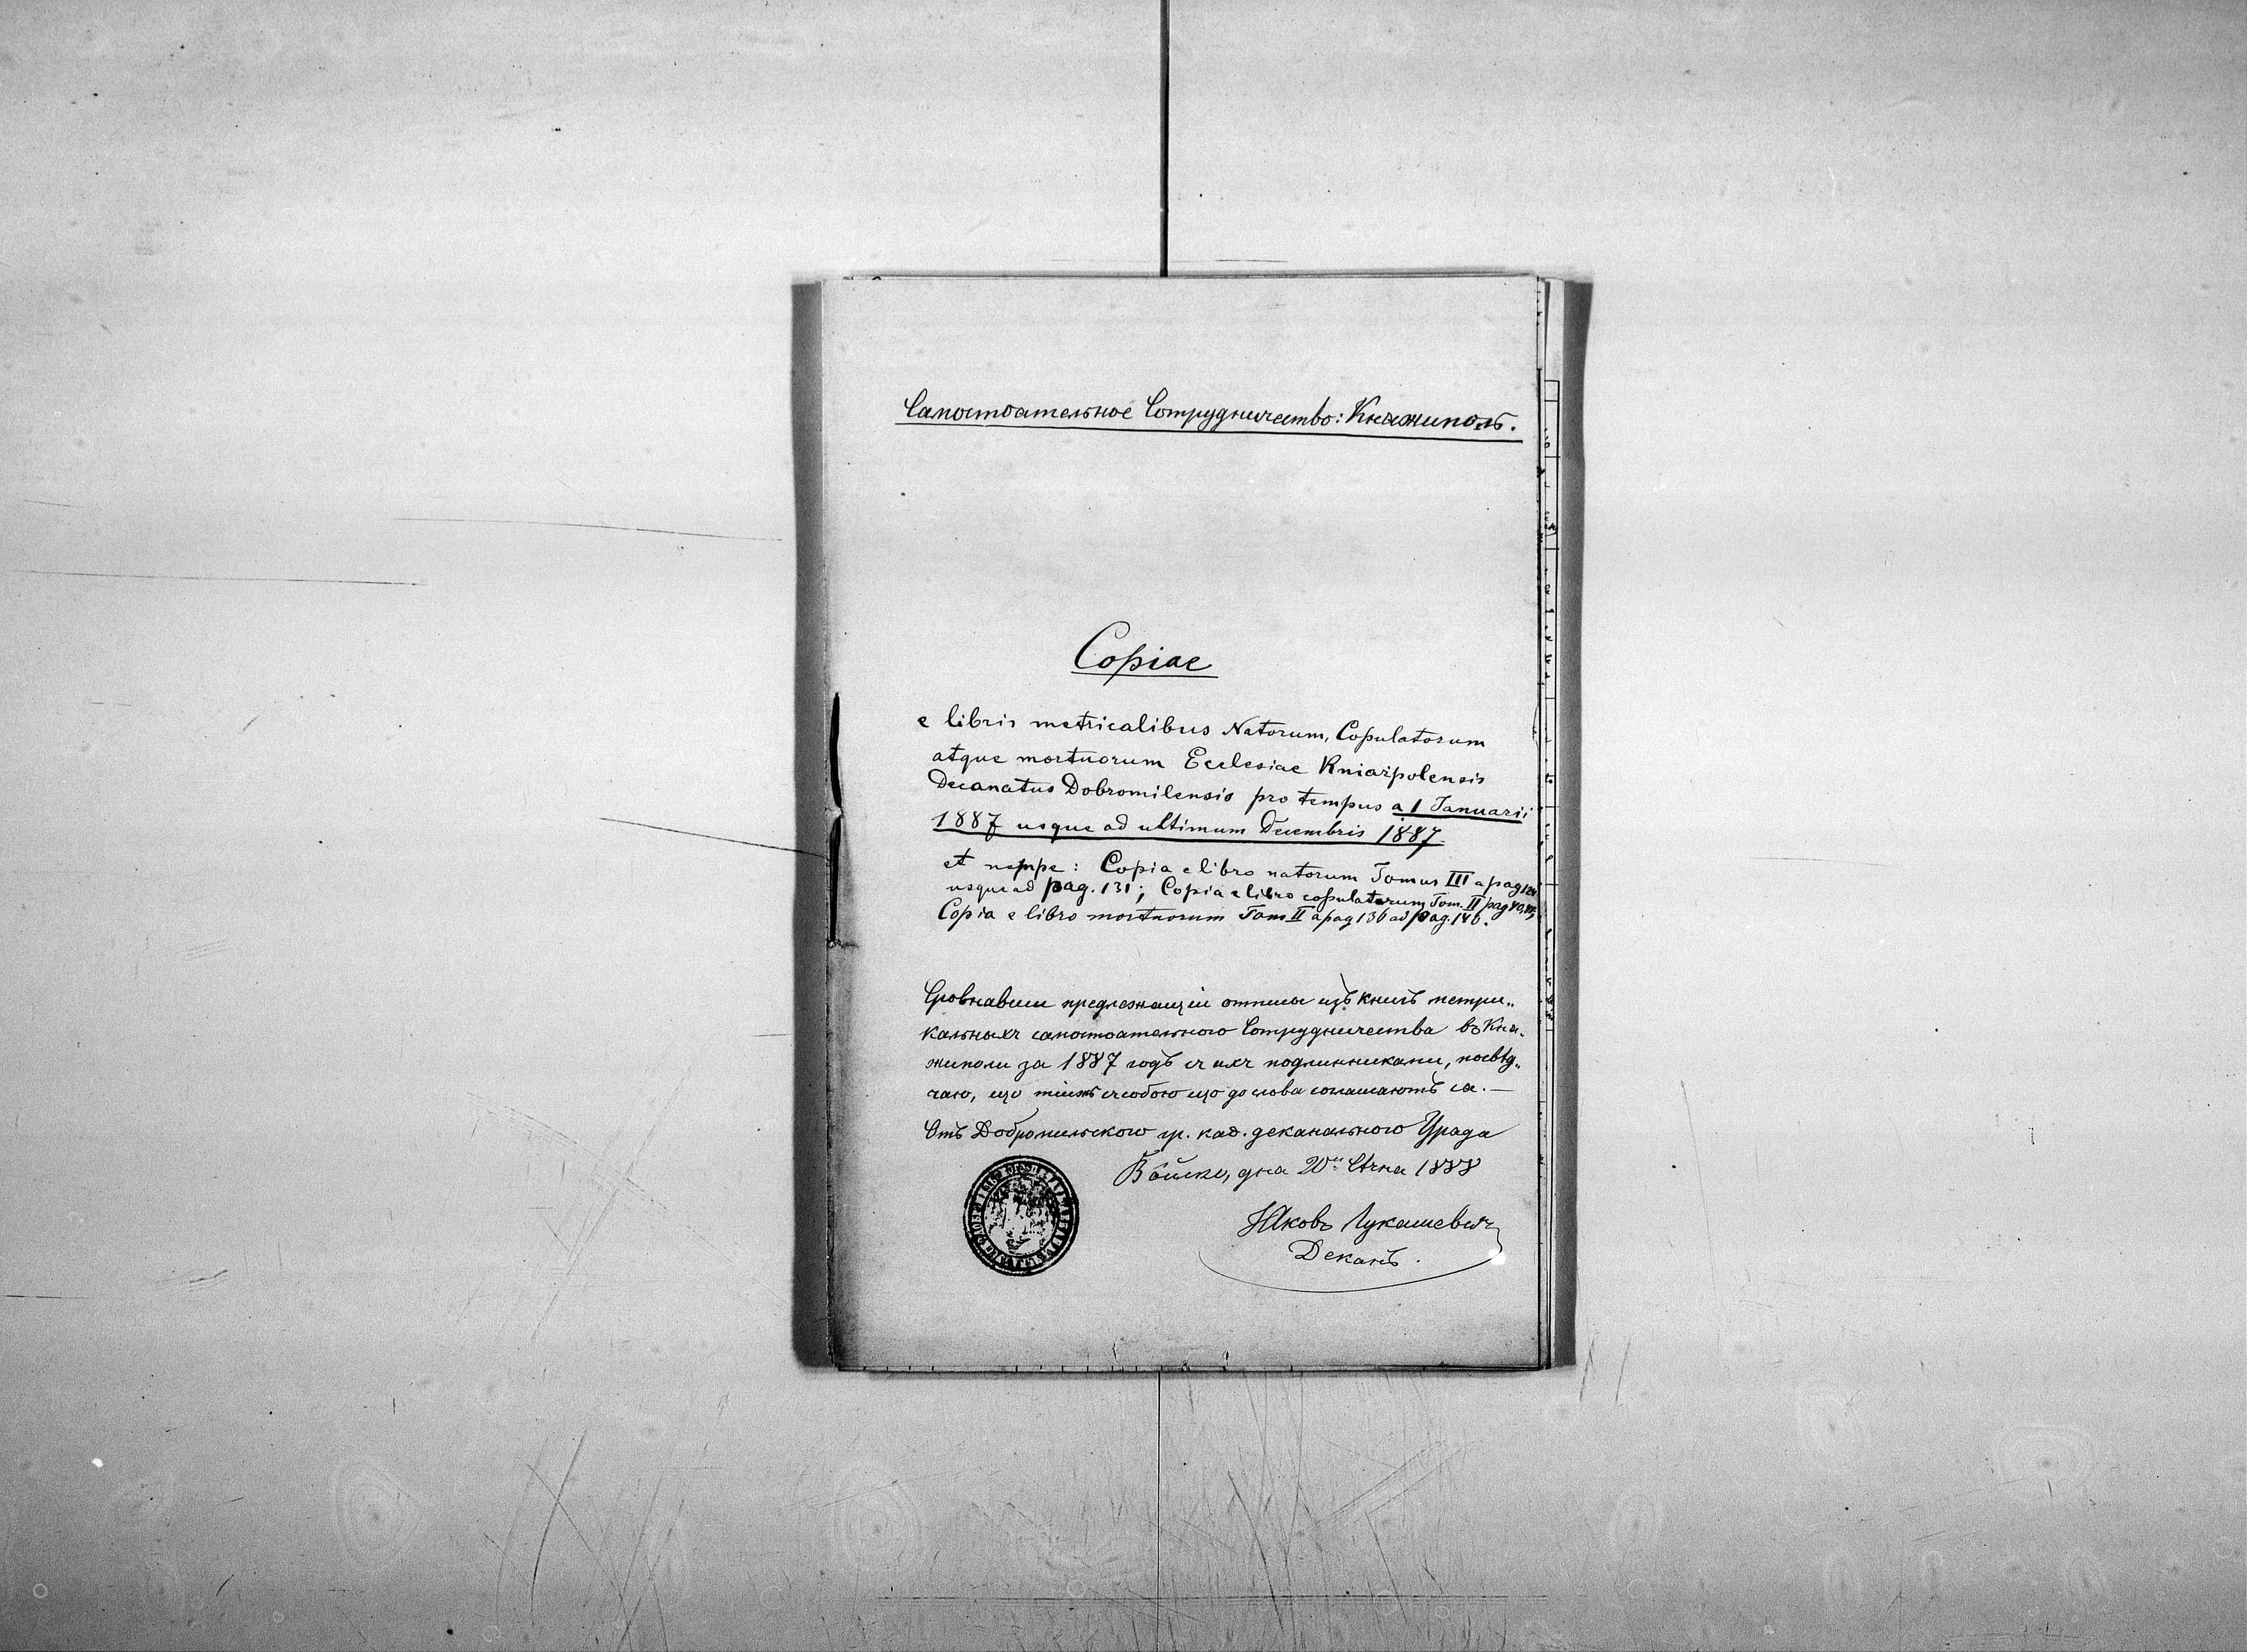 Самостоательное Сотрудничество: Кнажиполь.
Copiae
e libris metricalibus Natorum, Copulatorum
atque mortuorum Ecclesiae Kniażpolensis
Decanatus Dobromilensis pro tempus a 1 Januarii
1887 usque ad ultimum Decembris 1887.
et nempe: Copia e libro natorum Tomus III a pag
usque ad pag. 131; Copia e libro copulatorum Tom. II pag
Copia e libro mortuorum Tom II a pag 136 ad pag. 146.
Сровнавши предлежащіи отписы изъ книгъ метри„
кальныхъ самостоательного Сотрудничества въ Кна„
жиполи за 1887 годъ съ ихъ подлинниками, посвѣд„
чаю, що тіижъ съ собою що до слова соглашаютъ са. —
Отъ Добромильского гр. каѳ. деканального Урада
Война, дна 20 Стчна 1888
Іаковъ Лукашевичъ
Деканъ.